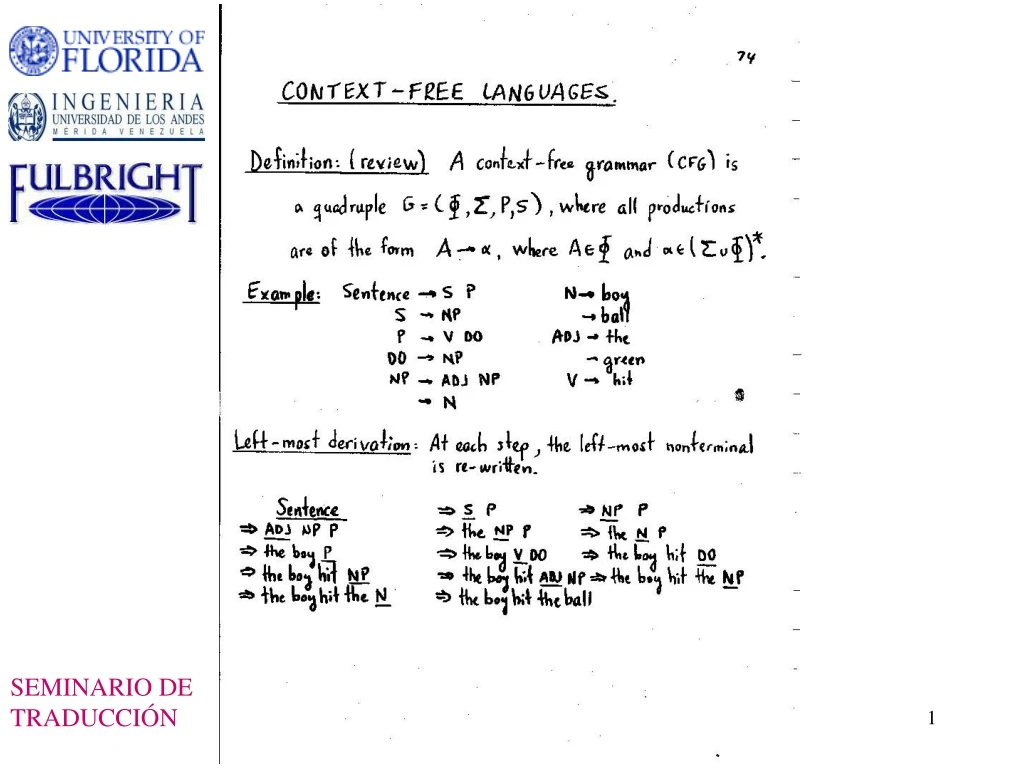 UNIVERSITY OF
FLORIDA
INGENIERIA
UNIVERSIDAD DE LOS ANDES
MÉRIDA VENEZUELA
FULBRIGHT
74
CONTEXT-FREE LANGUAGES.
Definition: (review) A context-free grammar (CFG) is
a quadruple G = (Φ, Σ, P, S), where all productions
are of the form A → α, where A ∈ Φ and α ∈ (Σ ∪ Φ)*.
Example: Sentence → S P N → boy
S → NP → ball
P → V DO ADJ → the
DO → NP → green
NP → ADJ NP V → hit
→ N
Left-most derivation: At each step, the left-most nonterminal
is re-written.
Sentence ⇒ S P ⇒ NP P
⇒ ADJ NP P ⇒ the NP P ⇒ the N P
⇒ the boy P ⇒ the boy V DO ⇒ the boy hit DO
⇒ the boy hit NP ⇒ the boy hit ADJ NP ⇒ the boy hit the NP
⇒ the boy hit the N ⇒ the boy hit the ball
SEMINARIO DE
TRADUCCIÓN
1